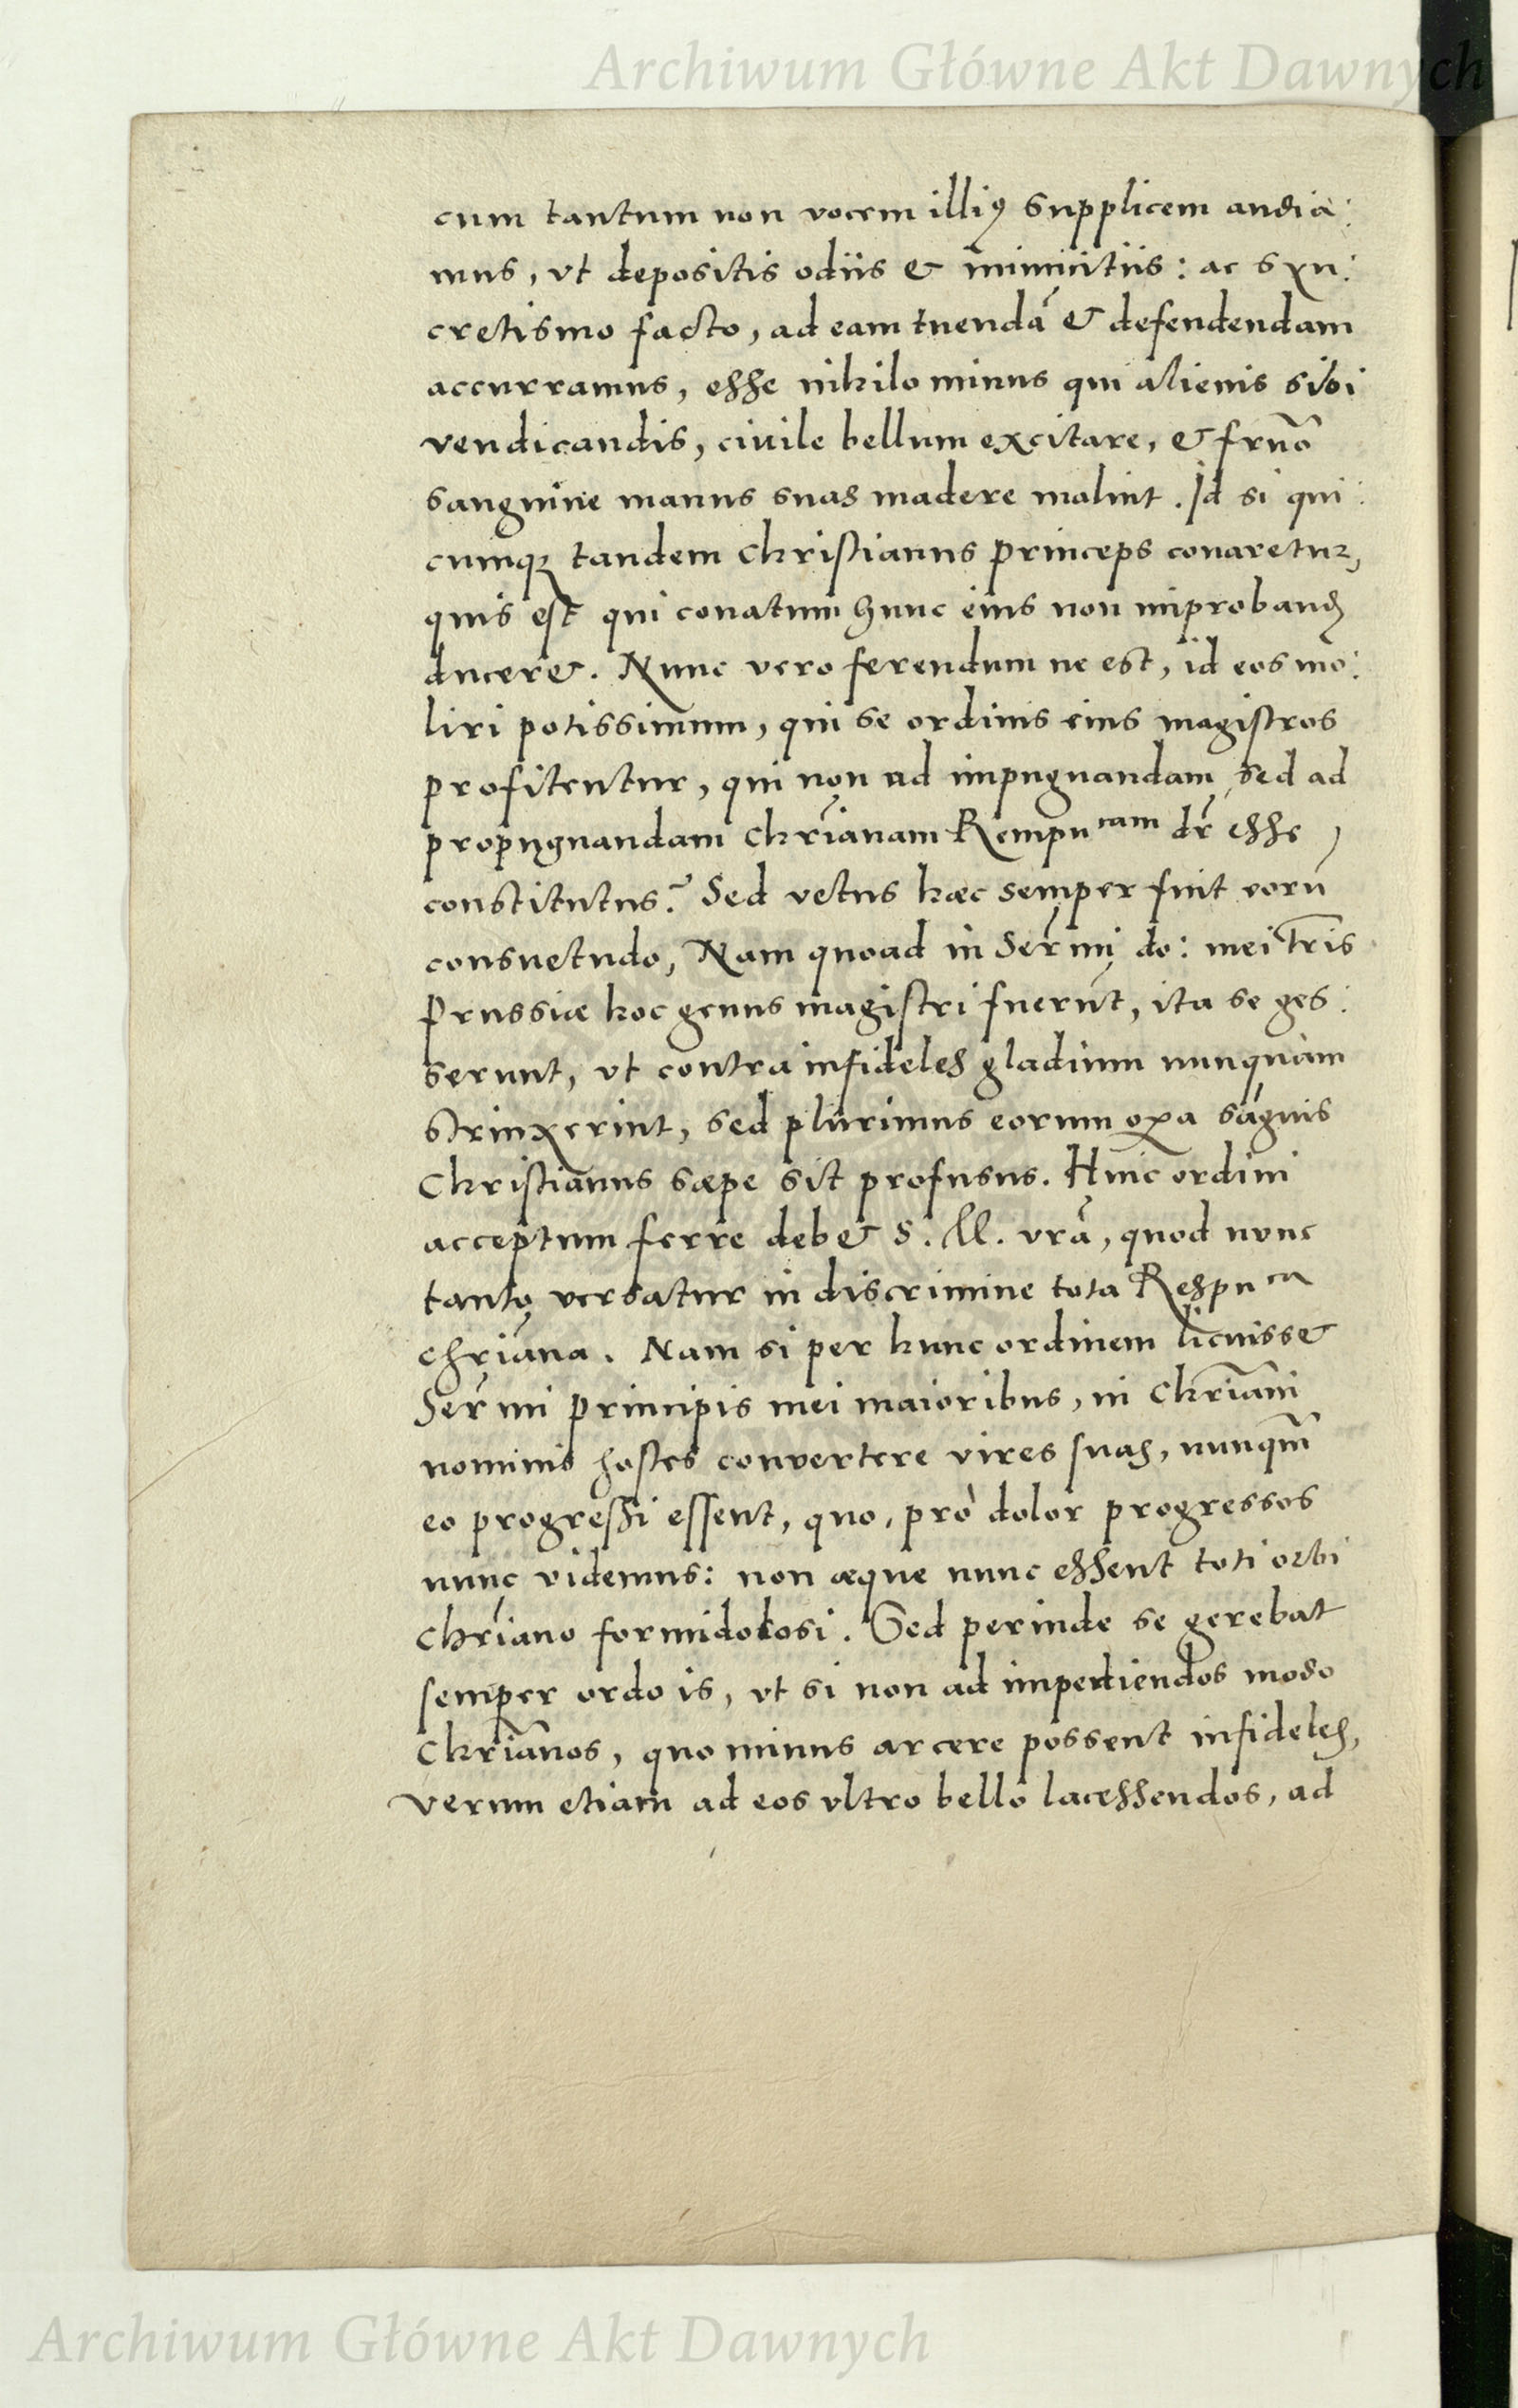 Archiwum Główne Akt Dawnych
cum tantum non vocem illiꝰ supplicem audia:
mus, vt depositis odiis & inimicitiis: ac syn:
cretismo facto, ad eam tuendā & defendendam
accurramus, esse nihilo minus qui alienis sibi
vendicandis, ciuile bellum excitare, & frn̄o
sanguine manus suas madere malint. Id si qui:
cumqꝫ tandem Christianus princeps conaretur,
quis est qui conatum hunc eius non improbandū
duceret. Nunc vero ferendum ne est, id eos mo:
liri potissimum, qui se ordinis eius magistros
profitentur, qui non ad impugnandam sed ad
propugnandam Chrīanam Rempu cam dr̄ esse
constitutus? Sed vetus hæc semper fuit eorū
consuetudo, Nam quoad in Ser̄mi do: mei tr̄is
Prussiæ hoc genus magistri fuerūt, ita se ges:
serunt, vt contra infideles gladium nunquam
strinxerint, sed plurimus eorum oꝑa sāguis
Christianus sæpe sit profusus. Huic ordini
acceptum ferre debet S. M. vrā, quod nunc
tanto versatur in discrimine tota Respu ca
chrīana. Nam si per hunc ordinem licuisset
Ser̄mi principis mei maioribus, in Chrīani
nominis hostes convertere vires suas, nunqm̄
eo progressi essent, quo, prò dolor progressos
nunc videmus: non æque nunc essent toti orbi
Chrīano formidolosi. Sed perinde se gerebat
semper ordo is, vt si non ad impediendos modo
Chrīanos, quo minus arcere possent infideles,
verum etiam ad eos vltro bello lacessendos, ad
Archiwum Główne Akt Dawnych